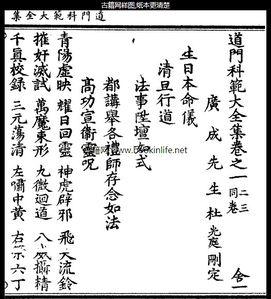 古籍网样图,纸本更清楚
道門科範大全集
道門科範大全集卷之一 二三同卷
廣成先生杜光庭刪定
生日本命儀
清旦行道
法事陞壇如式
都講舉各禮師存念如法
髙功宣衛靈呪
青陽虛映 耀日回靈 神虎辟邪 飛天流鈴
摧奸滅試 萬魔束形 九微迴道 八威攝精
千真校錄 三元蕩清 左嘯中黃 右 六丁